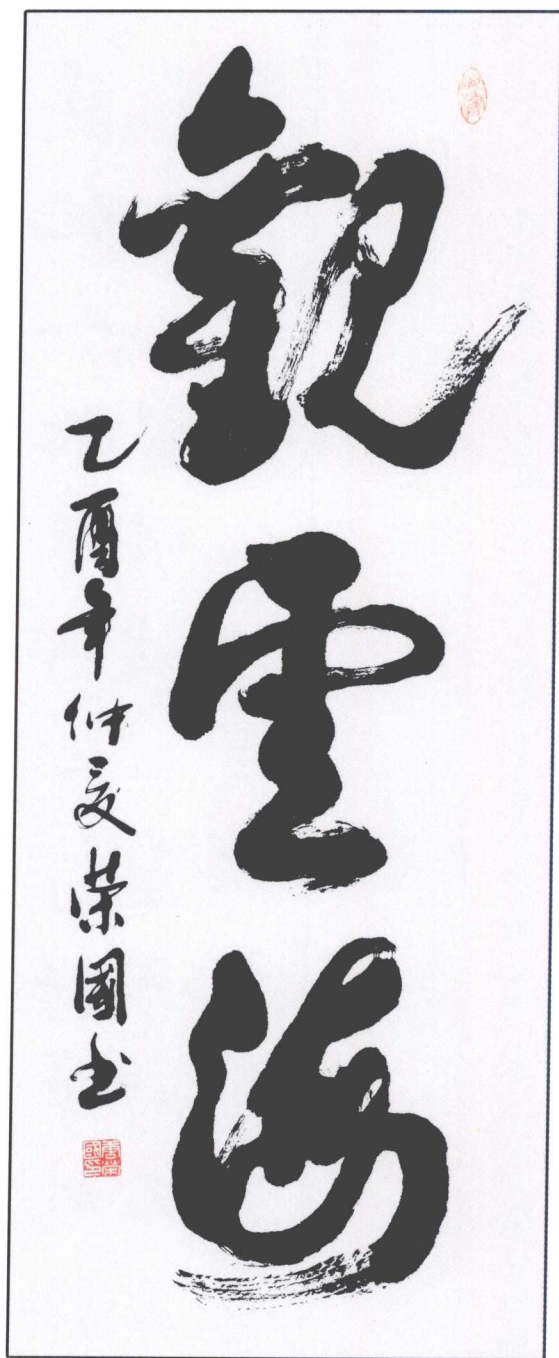 觀雲海
乙酉年仲夏荣國书